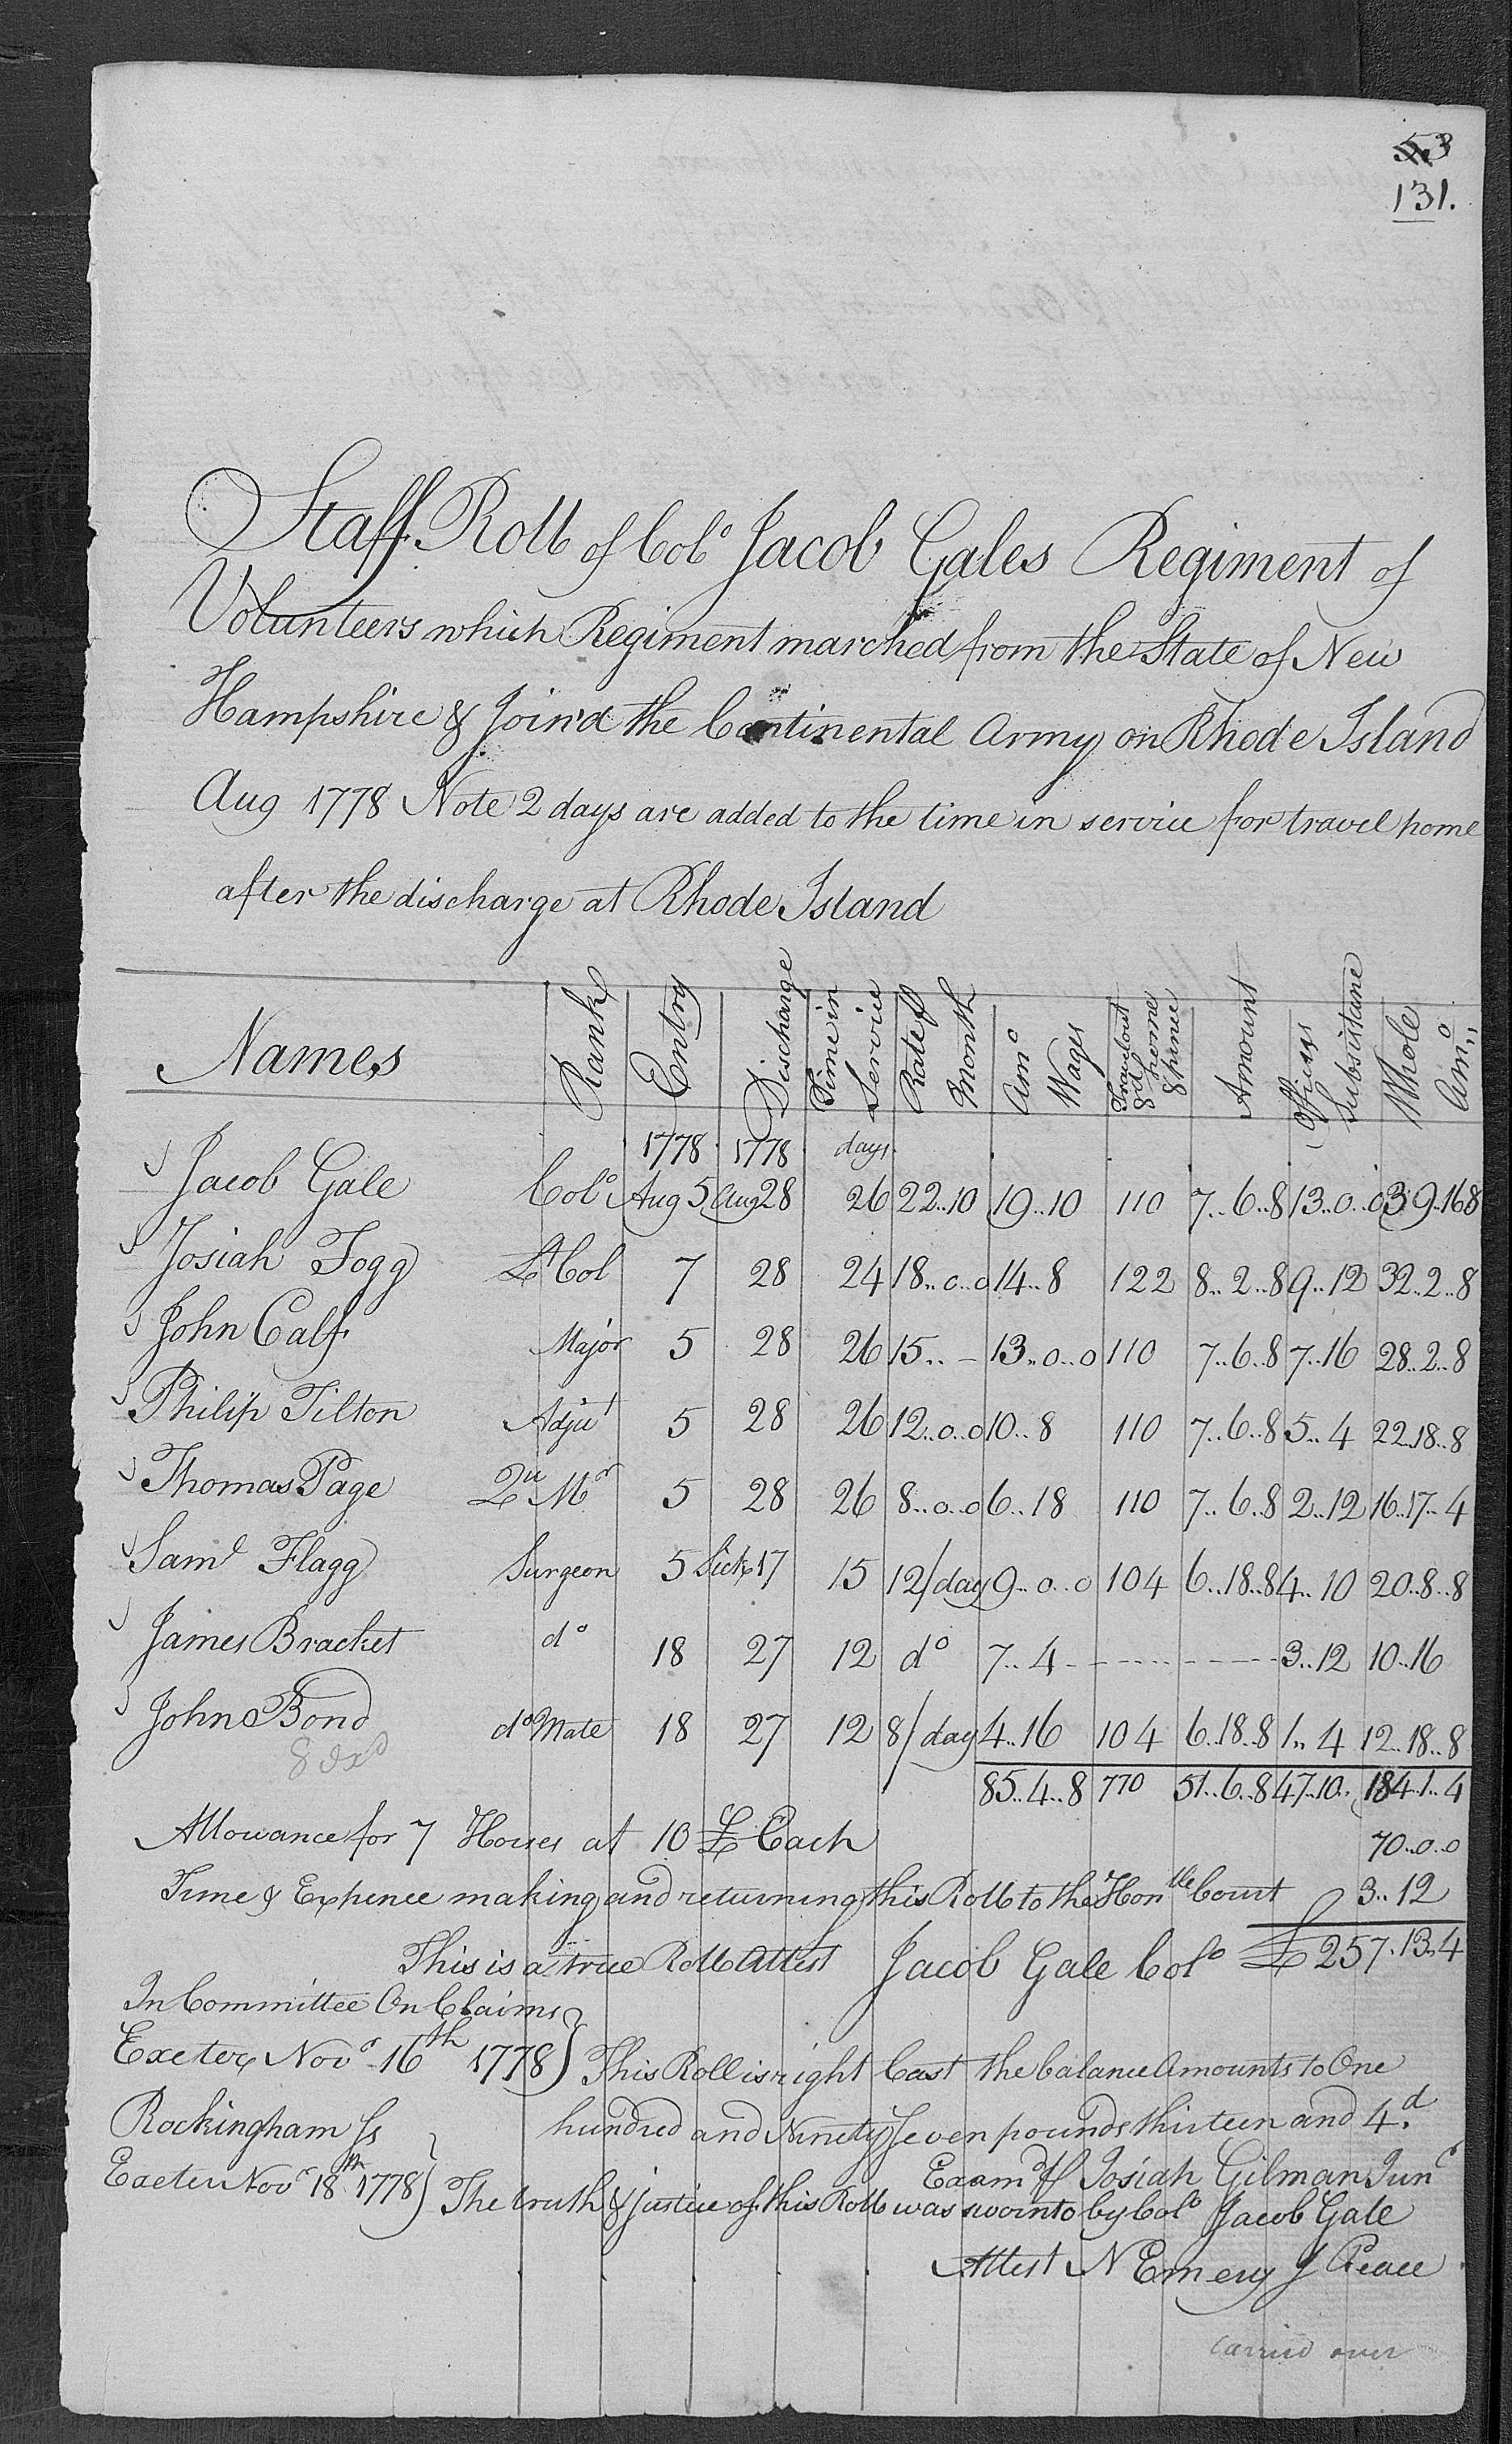 53
131.
Staff Roll of Colo Jacob Gales Regiment of
Volunteers which Regiment marched from the State of New
Hampshire & Join'd the Continental Army on Rhode Island
Aug 1778 Note 2 days are added to the time in service for travel home
after the discharge at Rhode Island
Names Rank Entry Discharge Time in Service Rate p Month Amo Wages Travel out & home 8 pence Amount Officers Subsistane Whole Amo
1778 1778 days
Jacob Gale Colo Aug 5 Aug 28 26 22..10 19..10 110 7..6..8 13..0..0 39..16 8
Josiah Fogg Lt Col 7 28 24 18..0..0 14..8 122 8..2..8 9..12 32..2..8
John Calf Major 5 28 26 15..- 13..0..0 110 7..6..8 7..16 28..2..8
Philip Tilton Adjut 5 28 26 12..0..0 10..8 110 7..6..8 5..4 22..18..8
Thomas Page Qu Mr 5 28 26 8..0..0 6..18 110 7..6..8 2..12 16..17..4
Saml Flagg Surgeon 5 Sick 17 15 12/day 9..0..0 104 6..18..8 4..10 20..8..8
James Bracket do 18 27 12 do 7..4 - - - - - - - - 3..12 10..16
John Bond do Mate 18 27 12 8/day 4..16 104 6..18..8 1..4 12..18..8
8 Ex'd
85..4..8 770 51..6..8 47..10.. 184..1..4
Allowance for 7 Horses at 10 £ Each 70..0..0
Time & Expence making and returning this Roll to the Honble Court 3..12
This is a true Roll Attest Jacob Gale Colo £ 257.13..4
In Committee On Claims
Exeter Novr 16th 1778 } This Roll is right Cast the balance Amounts to One
hundred and Ninety Seven pounds thirteen and 4d.
Rockingham Ss
Examd p Josiah Gilman Junr
Exeter Novr 18th 1778 } The truth & justice of this Roll was sworn to by Colo Jacob Gale
Attest N Emery J Peace
Carried over